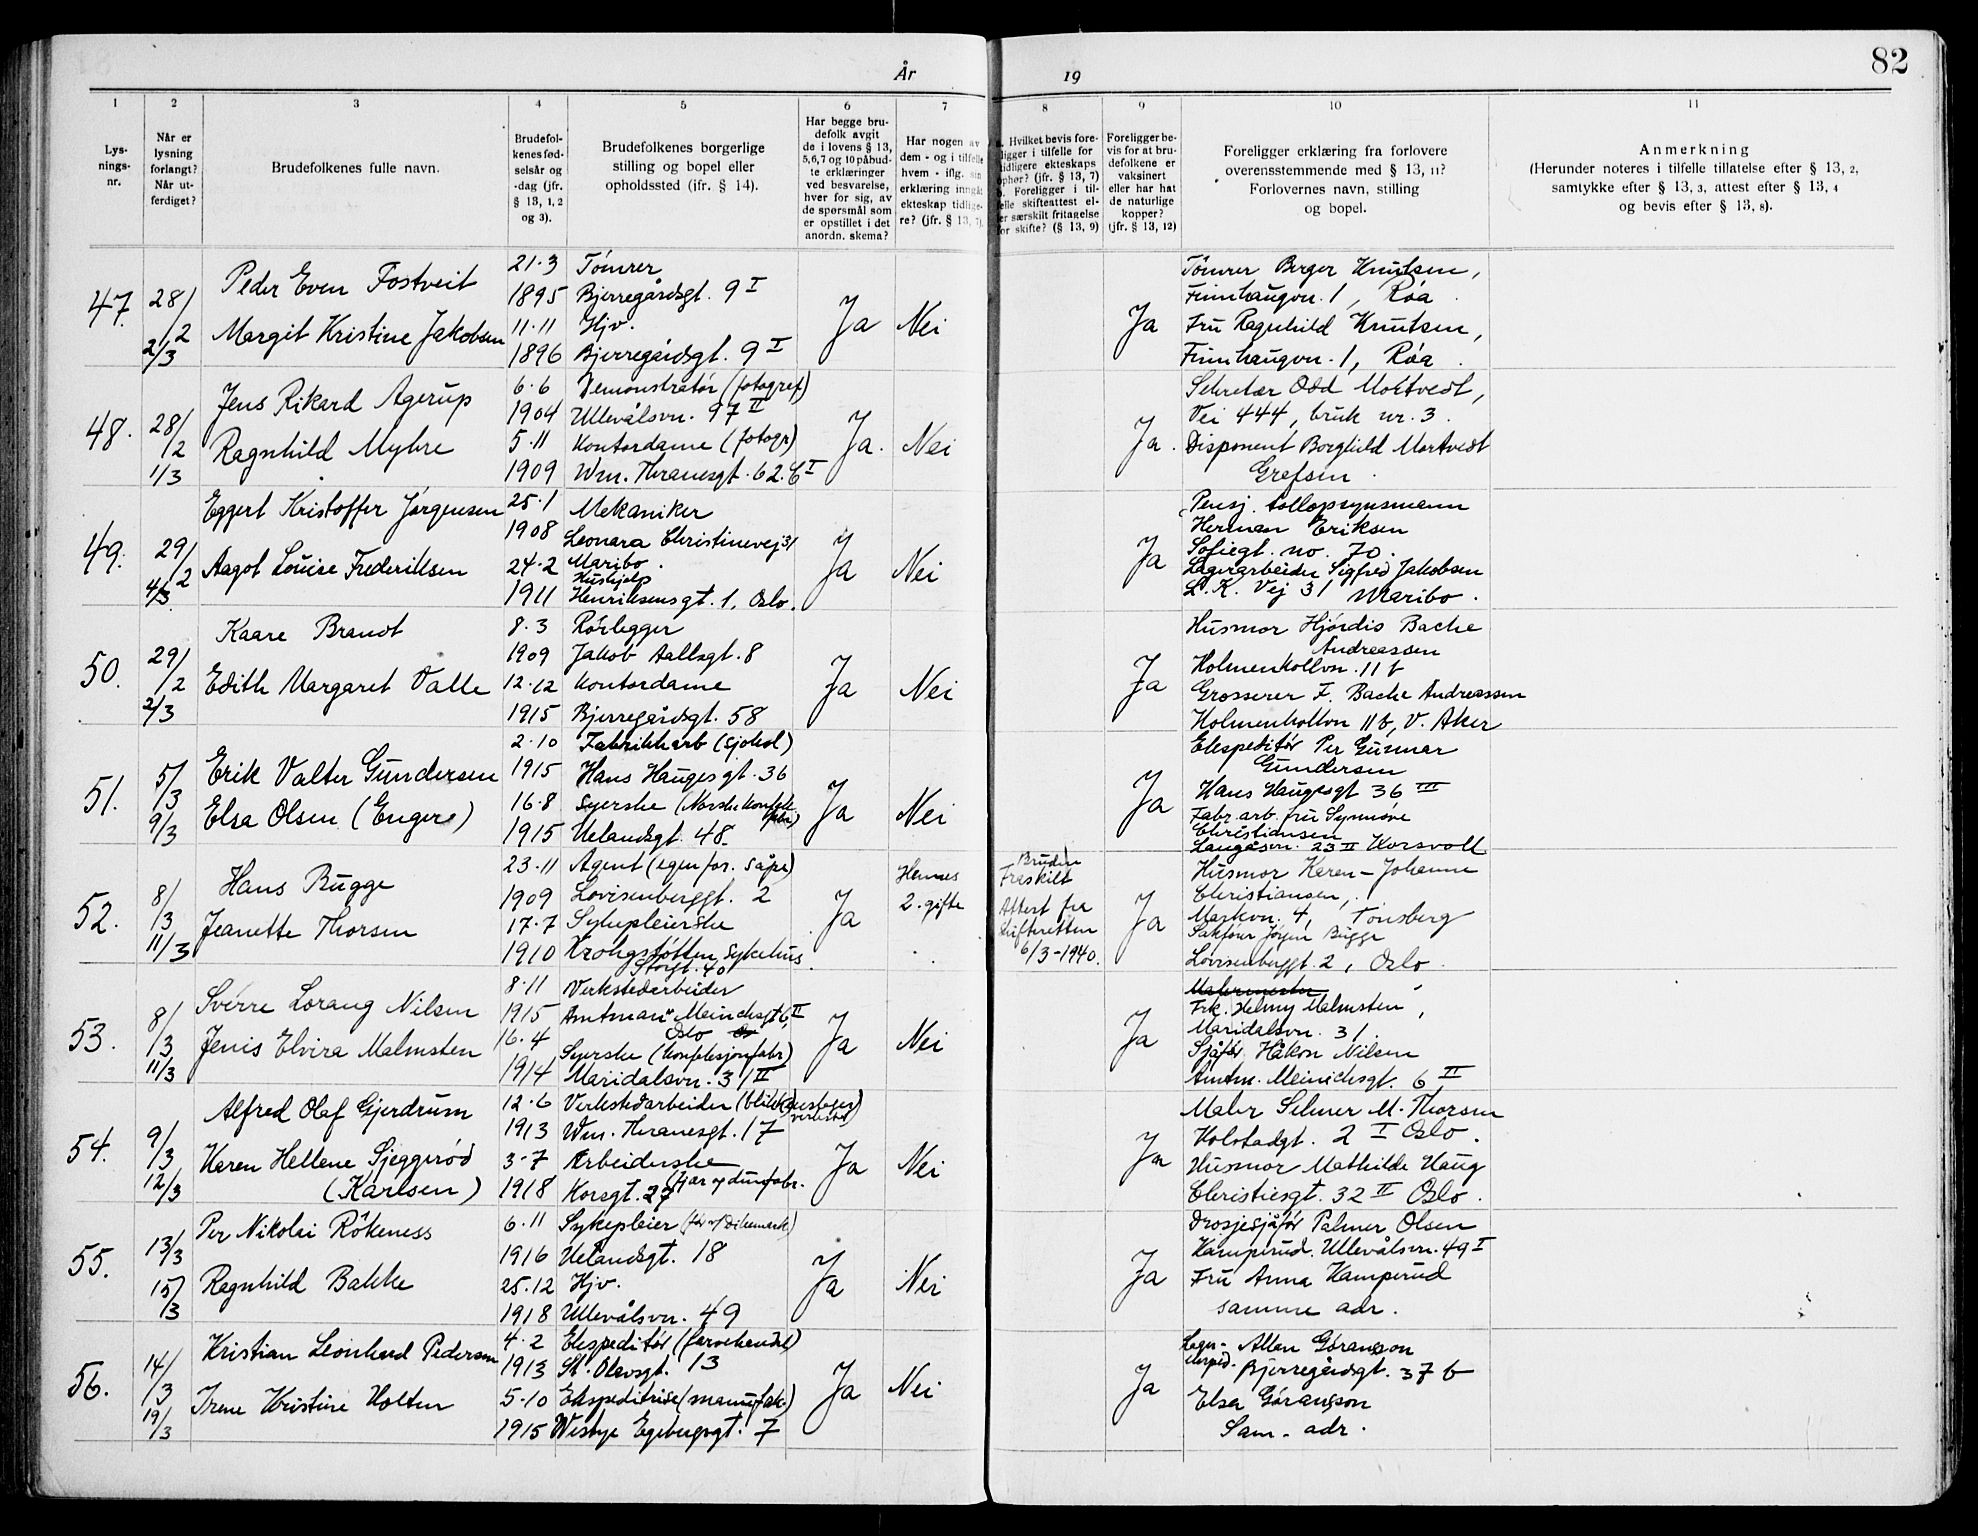 År 19
82
1 2 3 4 5 6 7 8 9 10 11
Lys-
nings-
nr.
Når er
lysning
forlangt?
Når ut-
ferdiget?
Brudefolkenes fulle navn.
Brudefol-
kenes fød-
selsår og
-dag (jfr.
§ 13, 1, 2
og 3).
Brudefolkenes borgerlige
stilling og bopel eller
opholdssted (ifr. § 14).
Har begge bru-
defolk avgit
de i lovens § 13,
5,6,7 og 10 påbud-
te erklæringer
ved besvarelse,
hver for sig, av
de spørsmål som
er opstillet i det
anordn. skema?
Har nogen av
dem - og i tilfelle
hvem - iflg. sin
erklæring inngåt
ekteskap tidlige-
re? (jfr. § 13, 7).
a. Hvilket bevis fore-
ligger i tilfelle for
tidligere ekteskaps
ophør? (jfr. § 13, 7)
b. Foreligger i til-
felle skifteattest el-
ler særskilt fritagelse
for skifte? (§ 13, 9)
Foreligger be-
vis for at bru-
defolkene er
vaksinert
eller har hat
de naturlige
kopper?
(jfr. § 13, 12)
Foreligger erklæring fra forlovere
overensstemmende med § 13, 11?
Forlovernes navn, stilling
og bopel.
Anmerkning
(Herunder noteres i tilfelle tillatelse efter § 13, 2,
samtykke efter § 13, 3, attest efter § 13, 4
og bevis efter § 13, 8).
47. 28/2 2/3
Peder Even Fostveit
Margit Kristine Jakobsen
21.3
1895
11.11
1896
Tömrer
Bjerregårdsgt. 9 I
Hjv.
Bjerregårdsgt. 9 I
Ja Nei Ja
Tömrer Berger Knutsen,
Finnhaugvn. 1, Röa.
Fru Ragnhild Knutsen,
Finnhaugvn. 1, Röa.
48. 28/2 1/3
Jens Rikard Agerup
Ragnhild Myhre
6.6
1904
5.11
1909
Demonstratör (fotograf)
Ullevålsvn. 97 II
Kontordame (fotogr)
Wm. Thranesgt. 62. I
Ja. Nei Ja.
Sekretær Odd Mortvedt,
Vei 444, bruk nr. 3.
Disponent Borghild Mortvedt
Grefsen.
49. 29/2 4/3
Eggert Kristoffer Jørgensen
Aagot Louise Frederiksen
25.1
1908
24.2
1911
Mekaniker
Leonara Christinevej 31
Maribo.
Hushjelp
Henriksensgt. 1, Oslo.
Ja Nei Ja
Pensj. tollopsynsmann
Herman Eriksen
Sofiegt. no. 70.
Lagerarbeider Sigfred Jakobsen
L. K. Vej 31 Maribo.
50. 29/2 2/3
Kaare Brandt
Edith Margaret Valle
8.3
1909
12.12
1915
Rörlegger
Jakob Aallsgt. 8
Kontordame
Bjerregårdsgt. 58
Ja Nei Ja
Husmor Hjördis Bache
Andreassen
Holmenkollvn. 11 b
Grosserer F. Bache Andreassen
Holmenkollvn 11 b, V. Aker
51. 5/3 9/3
Erik Valter Gundersen
Elsa Olsen (Engers)
2.10
1915
16.8
1915
Fabrikkarb (sjokol)
Hans Haugesgt. 36
Syerske (Norske konfek
fabr)
Uelandsgt. 48.
Ja Nei Ja
Ekspeditör Per Gunnar
Gundersen
Hans Haugesgt 36 III
Fabr. arb. fru Synnöve
Christiansen
Langåsvn. 23 II Korsvoll
52. 8/3 11/3
Hans Bugge
Jeanette Thorsen
23.11
1909
17.7
1910
Agent (egen for. såpe)
Lovisenberggt. 2
Sykepleierske
Krohgstötten Sykehus
Storgt. 40
Ja
Hennes
2. gifte
Bruden
Fraskilt
Attest fra
skifteretten
6/3-1940.
Ja
Husmor Karen-Johanne
Christiansen,
Markvn. 4, Tönsberg
Sakförer Jörgen Bugge
Lovisenberggt. 2, Oslo.
53. 8/3 11/3
Sverre Lorang Nilsen
Jenis Elvira Malmsten
8.11
1915
16.4
1914
Verkstedarbeider
Amtman Meinichsgt 6, II
Oslo
Syerske (konfeksjonfabr)
Maridalsvn. 31 II
Ja Nei Ja
Frk. Helmy Malmsten,
Maridalsvn. 31.
Sjåför Håkon Nilsen
Amtm. Meinichsgt. 6 II
54. 9/3 12/3
Alfred Olaf Gjerdrum
Karen Hellene Sjeggeröd
(Karlsen)
12.6
1913
3.7
1918
Verkstedarbeider
Wm. Thranesgt. 17
Arbeiderske
fjær og dunfabr.
Korsgt. 27
Ja Nei Ja
Maler Selmer M. Thorsen
Kolstadgt. 2 I Oslo.
Husmor Mathilde Haug
Christiesgt. 32 II Oslo.
55. 13/3 15/3
Per Nikolai Rökeness
Ragnhild Bakke
6.11
1916
25.12
1918
Sykepleier
Uelandsgt. 18
Hjv.
Ullevålsvn. 49
Ja Nei Ja
Drosjesjåför Palmer Olsen
Kamperud. Ullevålsvn. 49 I
Fru Anna Kamperud
samme adr.
56. 14/3 19/3
Kristian Leonhard Pedersen
Irene Kristine Holten
4.2
1913
5.10
1915
Ekspeditör (farvehandel)
St. Olavsgt. 13
Ekspeditrise (manufak.)
Westye Egebergsgt. 7
Ja Nei Ja
Lager-
eksped. Allan Göransson
Bjerregårdsgt. 37 b
Elsa Göransson
Sam. adr.